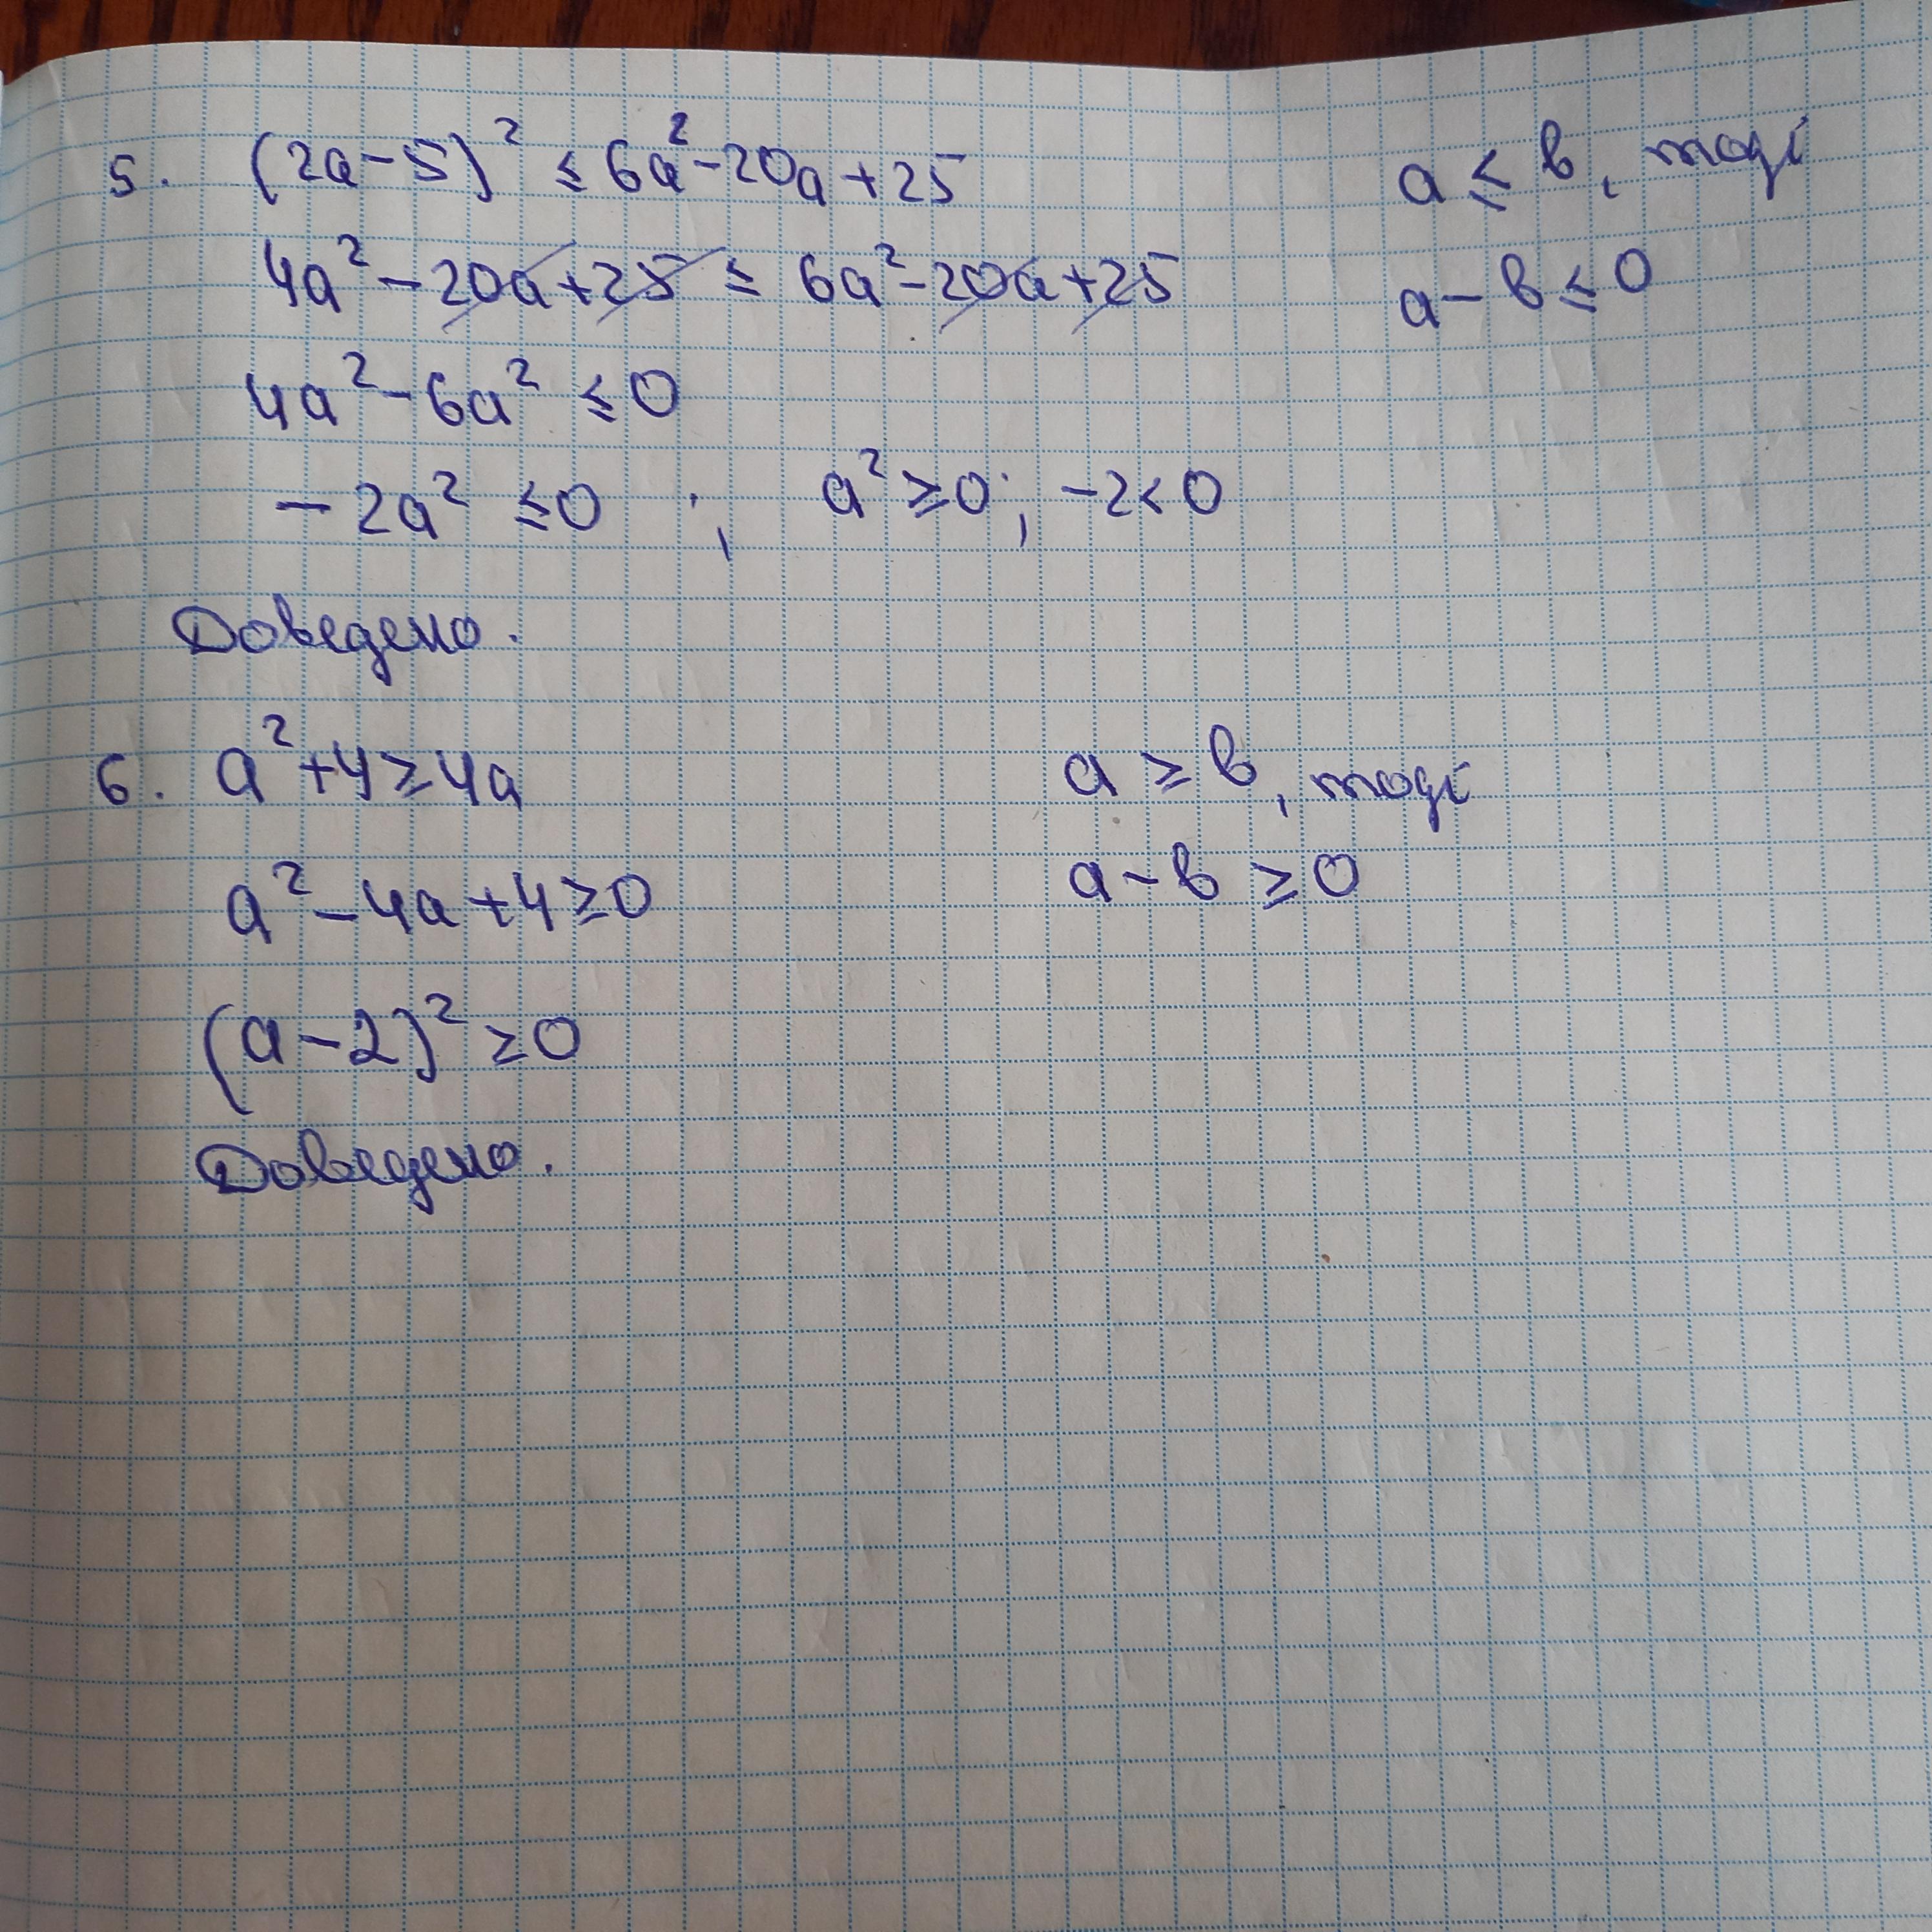 5. (2a-5)² ≤ 6a²-20a+25
a ≤ b, тоді
4a²-20a+25 ≤ 6a²-20a+25
a-b ≤ 0
4a²-6a² ≤ 0
-2a² ≤ 0 ; a² ≥ 0; -2<0
Доведено.
6. a²+4 ≥ 4a
a ≥ b, тоді
a²-4a+4 ≥ 0
a-b ≥ 0
(a-2)² ≥ 0
Доведено.